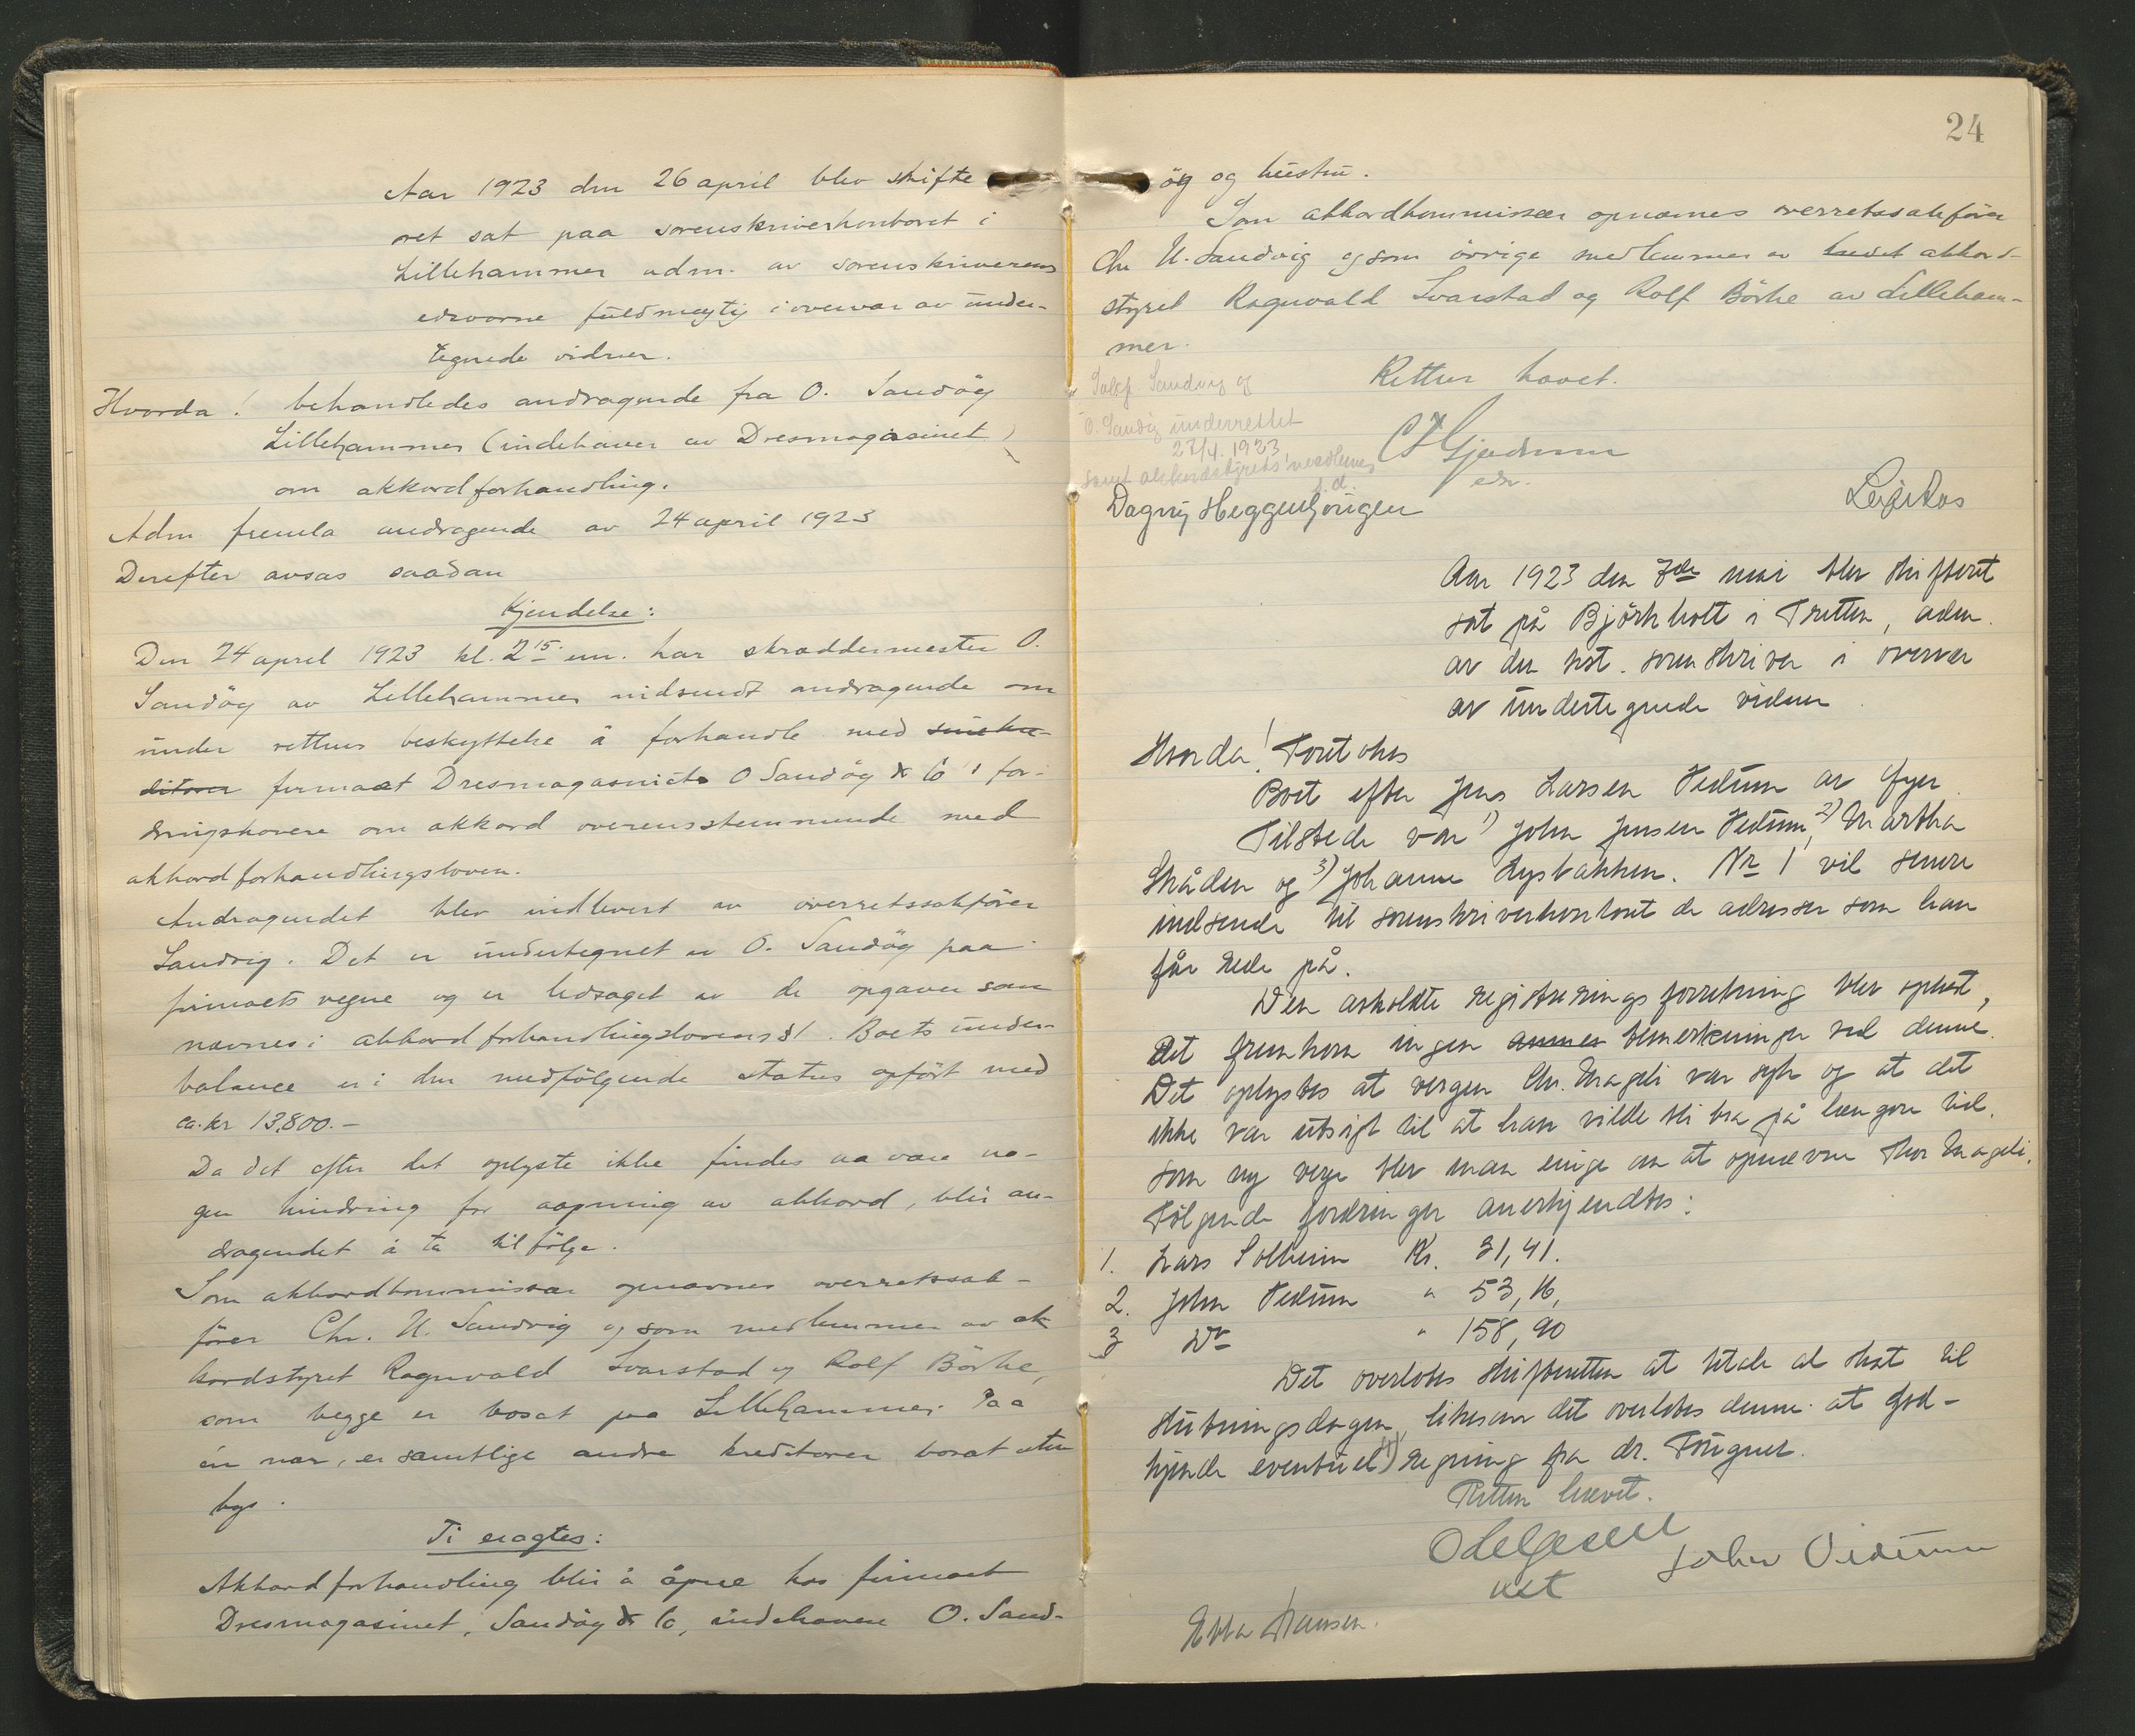 Aar 1923 den 26 april blev skifte
ret sat paa sorenskriverkontoret i
Lillehammer adm. av sorenskriverens
edsvorne fuldmegtig i overvær av under-
tegnede vidner.
Hvorda! behandledes andragende fra O. Sandög
Lillehammer (indehaver av Dresmagasinet)
om akkordforhandling.
Adm fremla andragende av 24 april 1923
Derefter avsas saadan
Kjendelse:
Den 24 april 1923 kl. 2 15 em. har skræddermester O.
Sandög av Lillehammer indsendt andragende om
under rettens beskyttelse å forhandle med sine kre-
ditorer firmaet Dresmagasinets O Sandög & Co's for-
dringshavere om akkord overensstemmende med
akkordforhandlingsloven.
Andragendet blev indlevert av overretssakförer
Sandvig. Det er undertegnet av O. Sandög paa
firmaets vegne og er ledsaget av de opgaver som
nævnes i akkordforhandlingslovens § 1. Boets under-
balance er i den medfölgende status opfört med
ca. kr 13,800.-
Da det efter det oplyste ikke findes aa være no-
gen hindring for aapning av akkord, blir an-
dragendet å ta til fölge.
Som akkordkommissær opnævnes overretssak-
förer Chr. U. Sandvig og som medlemmer av ak-
kordstyret Ragnvald Svarstad og Rolf Börke,
som begge er bosat paa Lillehammer. Paa
én nær, er samtlige andre kreditorer bosat uten
bys.
Ti eragtes:
Akkordforhandling blir å åpne hos firmaet
Dresmagasinet, Sandög & Co, indehavere O. Sand-
24
ög og hustru.
Som akkordkommissær opnævnes overretssakförer
Chr U. Sandvig og som övrige medlemmer av akkord-
styret Ragnvald Svarstad og Rolf Börke av Lilleham-
mer.
Retten hævet.
Sakf Sandvig og
O. Sandög underrettet
27/4. 1923
samt akkordstyrets medlemmer
s.d.
C F Gjerdrum
edsv.
Dagny Heggenhougen
Leif Aas
Aar 1923 den 7de mai blev skifteret
sat på Björkholt i Tretten, adm.
av den kst. sorenskriver i overvær
av undertegnede vidner.
Hvorda! Foretokes
Boet efter Jens Larsen Vedum av Öyer.
Tilstede var 1) John Jensen Vedum, 2) Martha
Skåden og 3) Johanne Lysbakken. Nr 1 vil senere
indsende til sorenskriverkontoret de adresser som han
får rede på.
Den avholdte registreringsforretning blev oplæst,
Det fremkom ingen bemerkninger ved denne.
Det oplystes at vergen Chr. Mageli var syk og at det
ikke var utsigt til at han vilde bli bra på længere tid.
Som ny verge blev man enige om at opnævne Thor Mageli.
Fölgende fordringer anerkjendtes:
1. Lars Solheim Kr. 31,41.
2. John Vedum " 53,16,
3 Do " 158,90
Det overlotes skifteretten at betale al skat til
slutningsdagen, likesom det overlotes denne at god-
kjende eventuel regning fra dr. Fougner.
Retten hævet.
O Helgesen
kst
John Vedum
Ebba Hansen.